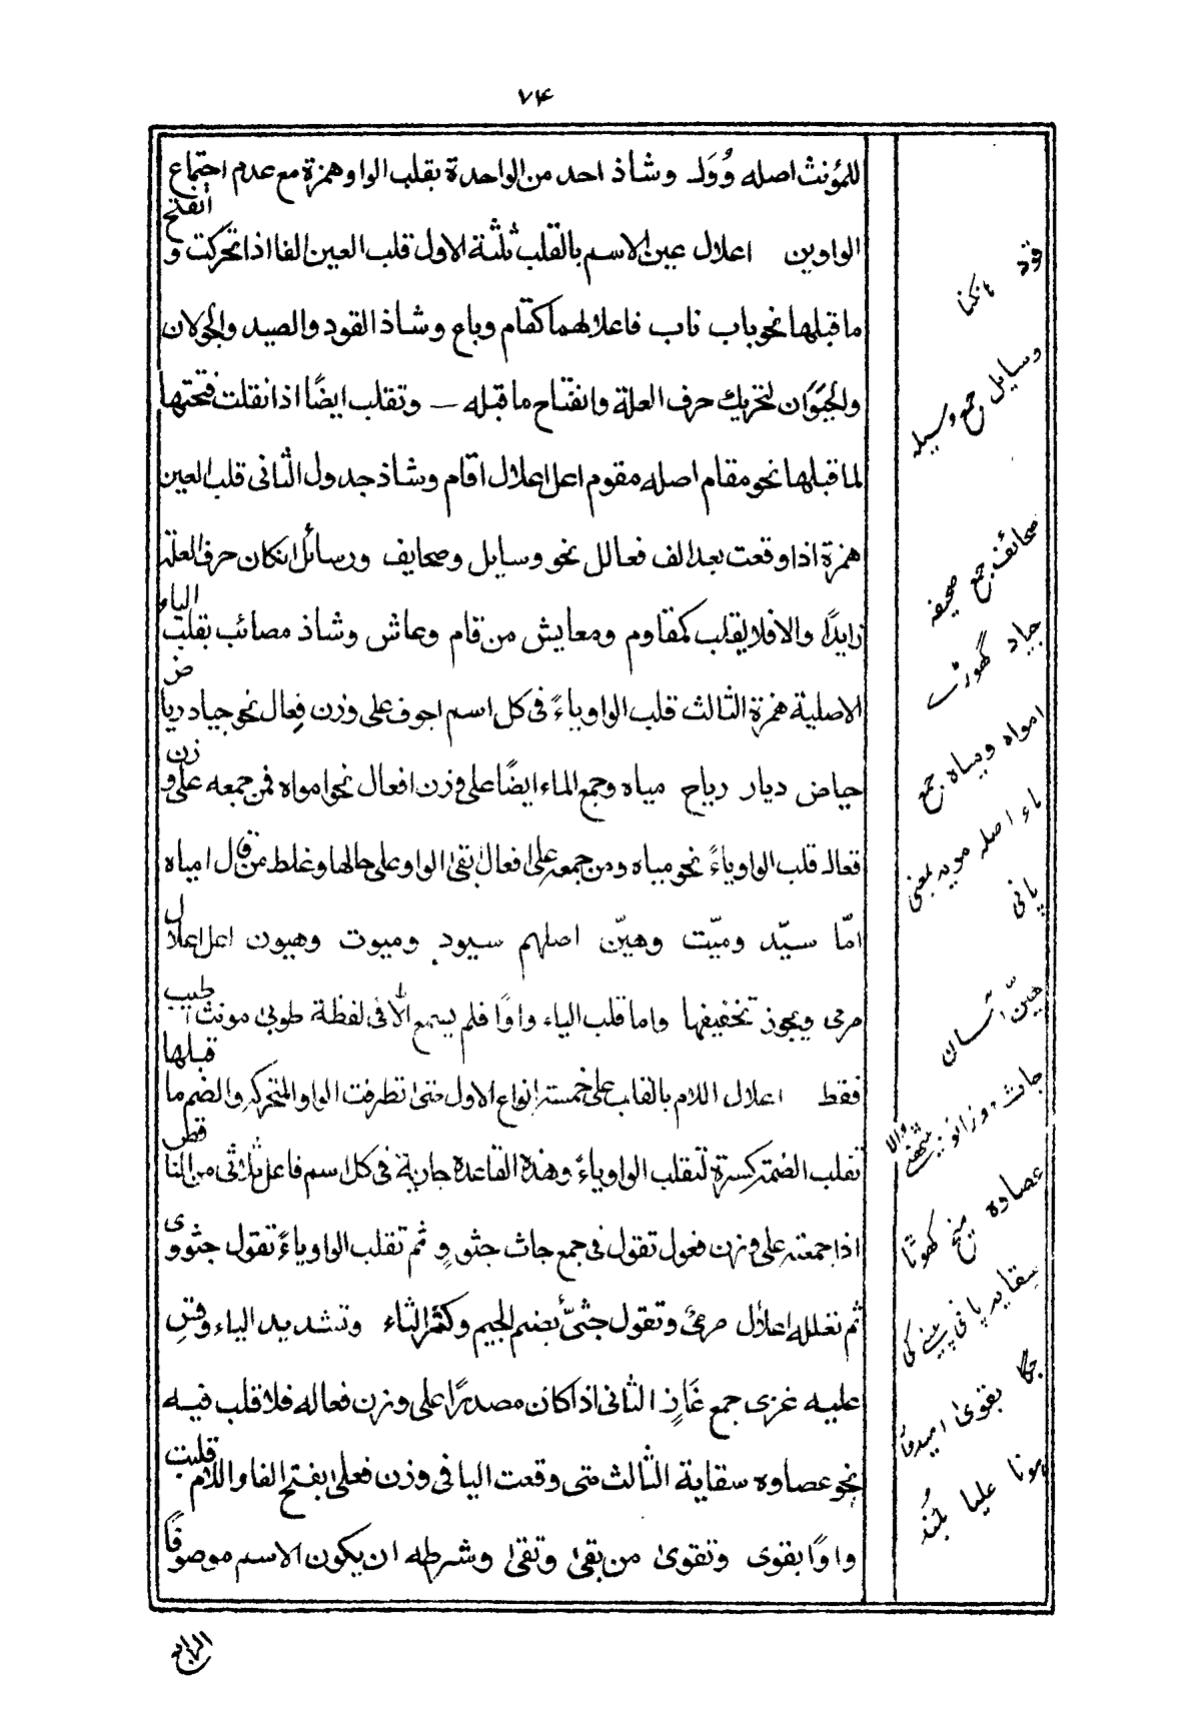 ۷۴
للمؤنث اصله وُوَلـ وشاذ احد من الواحدة بقلب الواو همزة مع عدم اجتماع
الواوين اعلال عين الاسم بالقلب ثلثة الاول قلب العين الفا اذا تحركت و انفتح
ما قبلها نحو باب ناب فاعلالهما كقام وباع وشاذ القود والصيد والجولان
والحَيَوَان لتحريك حرف العلة وانفتاح ما قبله — وتقلب ايضًا اذا نقلت فتحتها
لما قبلها نحو مقام اصله مقوم اعل اعلال اقام وشاذ جدول الثانى قلب العين
همزة اذا وقعت بعد الف فعالل نحو وسايل وصحايف ورسائل انكان حرف العلة
زايدًا والا فلا يقلب كمقاوم ومعايش من قام وعاش وشاذ مصائب بقلب الياء
الاصلية همزة الثالث قلب الواو ياءً فى كل اسم اجوف على وزن فِعال نحو جياد رياض
حياض ديار رياح مياه وجمع الماء ايضًا على وزن افعال نحو امواه فمن جمعه على وزن
فعالـ قلب الواو ياءً نحو مياه ومن جمعه على افعال بقى الواو على حالها وغلط من قال امياه
امّا سيّد وميّت وهيّن اصلهم سيود وميوت وهيون اعل اعلال
مرمى ويجوز تخفيفها واما قلب الياء واوًا فلم يسمع الا فى لفظة طوبى مونث اطيب
فقط اعلال اللام بالقلب على خمسة انواع الاول متى تطرفت الواو المتحركه والضم ما قبلها
تقلب الضمة كسرة لتقلب الواو ياءً وهذه القاعدة جارية فى كل اسم فاعل ثلاثى من الناقص
اذا جمعته على وزن فعول تقول فى جمع جاث جثوٍو ثم تقلب الواو ياءً تقول جثوى و
ثم تعلله اعلال مرمىٌ وتقول جثىٌّ بضم الجيم وكسر الثاء وتشديد الياء وقس
عليه غزى جمع غَازٍ الثانى اذا كان مصدرًا على وزن فعاله فلا قلب فيه
نحو عصاوه سقاية الثالث متى وقعت اليا فى وزن فعلى بفتح الفا واللام قلبت
واوًا بقوى وتقوى من بقى وتقى وشرطه ان يكون الاسم موصوفًا
قود ہانکنا
وسایل جمع وسیله
صحائف جمع صحیفه
جیاد گھوڑے
امواه ومیاه جمع
ماء اصله موہ بمعنی
پانی
هیّن آسان
جاث دوزانو بیٹھنے والا
عصاوه میخ کھونٹا
سقایه پانی پینے کی
جگا بقوی امیدفا
ہونا علیا بلند
الرابع